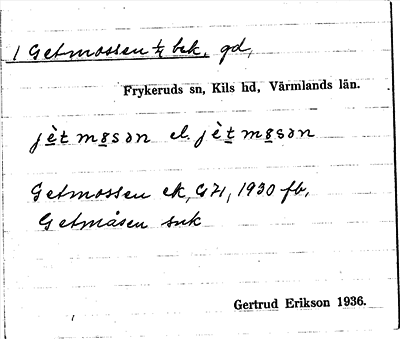 1 Getmossen ½ bek. gd,
Frykeruds sn, Kils hd, Värmlands län.
jèt mɷsən el. jèt mɷsən
Getmossen ek, G71, 1930 fb,
Getmåsen snk
Gertrud Erikson 1936.